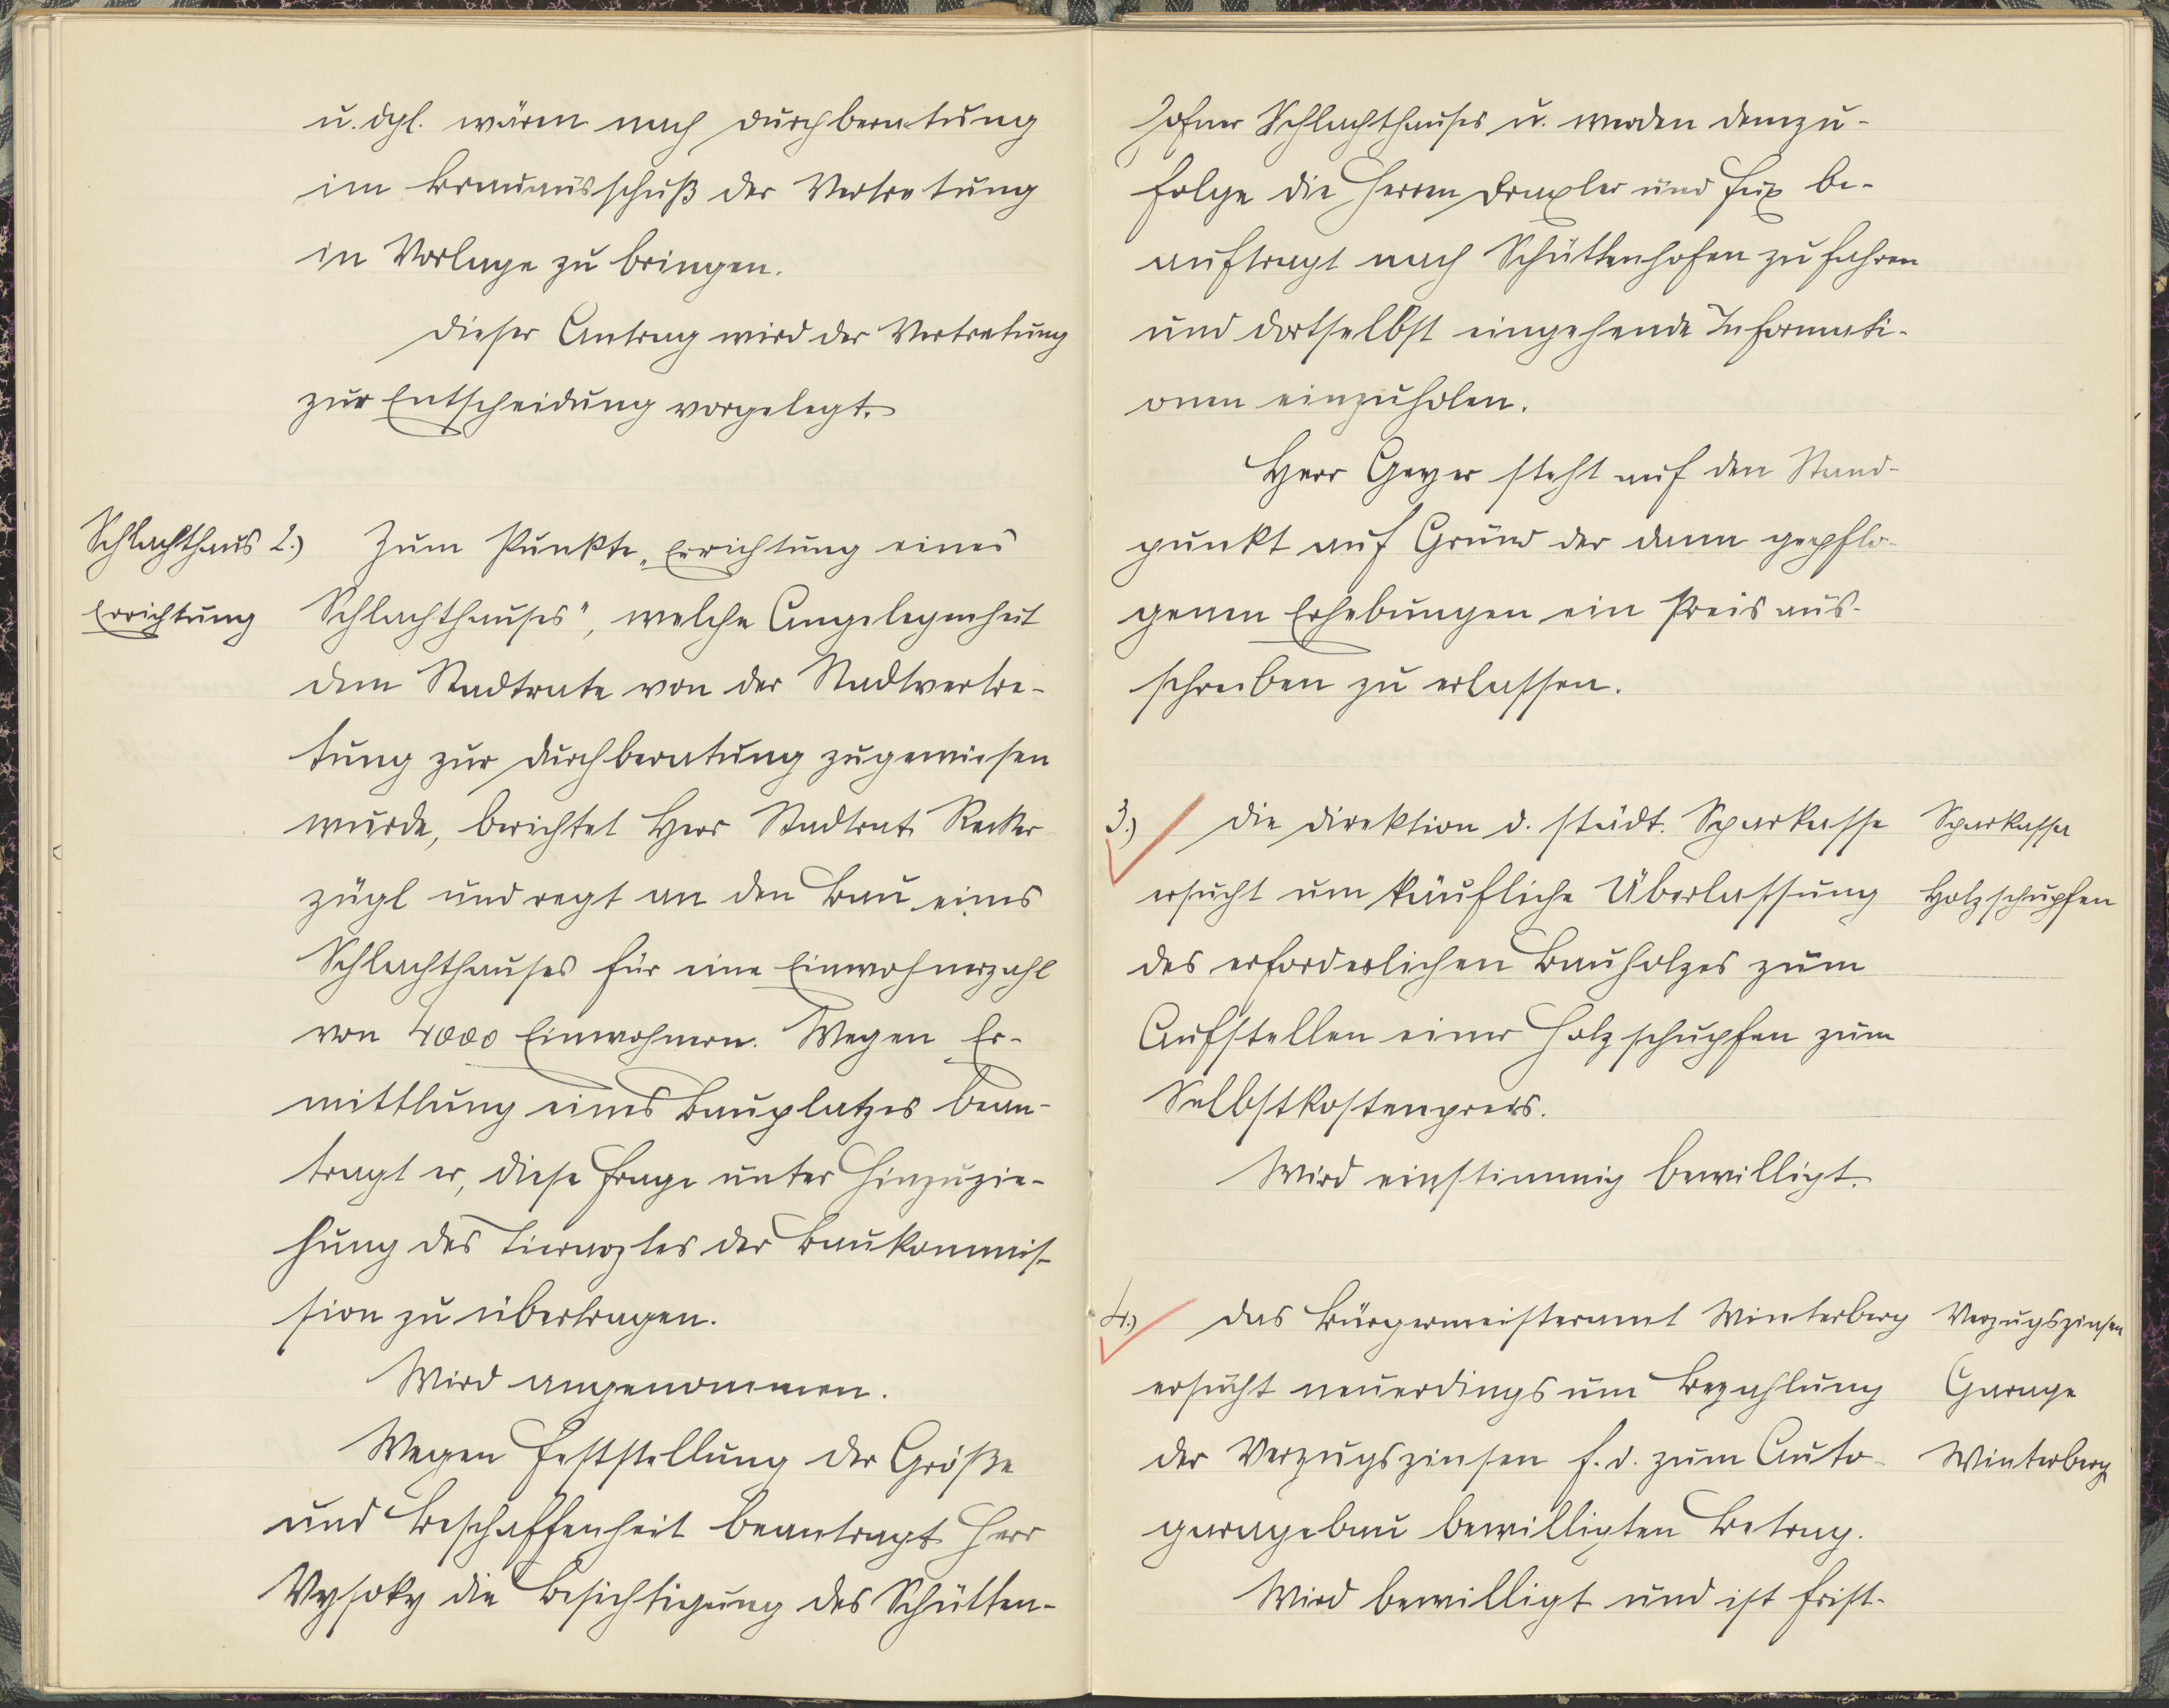 u. dgl. wären nach Durchberatung
im Brauausschuß der Vertretung
in Vorlage zu bringen.
Dieser Antrag wird der Vertretung
zur Entscheidung vorgelegt.
Schlachthaus
Errichtung
2.) Zum Punkte „Errichtung eines
Schlachthauses", welche Angelegenheit
dem Stadtrate von der Stadtvertre-
tung zur Durchberatung zugewiesen
wurde, berichtet Herr Stadtrat Recker-
zügl und regt an den Bau eines
Schlachthauses für eine Einwohnerzahl
von 4000 Einwohnern. Wegen Er-
mittlung eines Bauplatzes bean-
tragt er, diese Frage unter Hinzuzie-
hung des Tierarztes der Baukommis-
sion zu übertragen.
Wird angenommen.
Wegen Feststellung der Größe
und Beschaffenheit beantragt Herr
Vysoky die Besichtigung des Schütten-
hofner Schlachthauses u. werden demzu-
folge die Herren Draxler und Fux be-
auftragt nach Schüttenhofen zu fahren
und dortselbst eingehende Informati-
onen einzuholen.
Herr Geyer steht auf den Stand-
punkt auf Grund der dann gepflo-
genen Erhebungen ein Preisaus-
schreiben zu erlassen.
3.) Die Direktion d. städt. Sparkasse
ersucht um käufliche Überlassung
des erforderlichen Bauholzes zum
Aufstellen einer Holzschupfen zum
Selbstkostenpreis.
Wird einstimmig bewilligt.
Sparkassa
Holzschupfen
4.) Das Bürgermeisteramt Winterberg
ersucht neuerdings um Bezahlung
der Verzugszinsen f. d. zum Auto-
garagebau bewilligten Betrag.
Wird bewilligt und ist frist-
Verzugszinsen
Garage
Winterberg